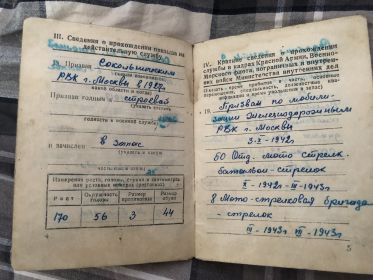 III. Сведения о прохождении призыва на
действительную службу
Призван Сокольническим
РВК г. Москвы в 1927г.
Признан годным к строевой
годности к военной службе
и зачислен в запас
Измерения роста, головы,
Рост
Окружность головы
Размер противогаза
Размер обуви
170 56 3 44
IV. Краткие сведения о прохождении
службы в кадрах Красной Армии, Военно-
Морского флота, пограничных и внутрен-
них войск Министерства внутренних дел
19. Призван по мобили-
зации Железнодорожным
РВК г. Москвы
3-X-1942г
60 Отд. мото стрелк.
батальон-стрелок
X-1942г III-1943г
8 Мото-стрелковая бригада
-стрелок
III-1943г VII-1943г
5